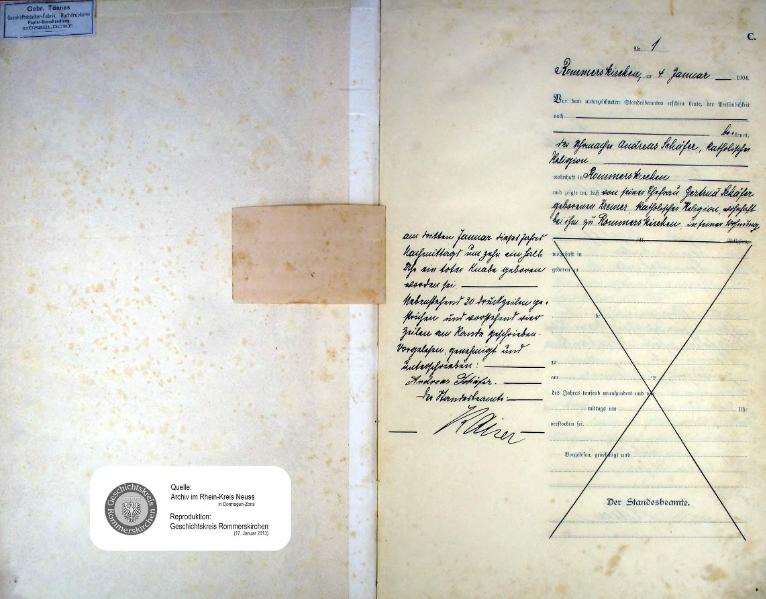 Gebr. Tönnes
DÜSSELDORF
C.
Nr. 1
Rommerskirchen, am 4. Januar 1904.
Vor dem unterzeichneten Standesbeamten erschien heute, der Persönlichkeit
nach
be kannt,
der Ehemacher Andreas Schäfer, katholischer
Religion
wohnhaft in Rommerskirchen
und zeigte an, daß von seiner Ehefrau Gertrud Schäfer
geborenen Kremer, katholischer Religion, wohnhaft
bei ihm zu Rommerskirchen, in seiner Wohnung
am dritten Januar dieses Jahres
Nachmittags um zehn ein halb
Uhr ein toter Knabe geboren
worden sei
Nebenstehend 20 Druckzeilen ge-
strichen und vorstehend vier
Zeilen am Rande geschrieben.
Vorgelesen, genehmigt und
unterschrieben:
Andreas Schäfer.
Der Standesbeamte:
Kaiser
wohnhaft in
geboren zu
zu
am
des Jahres tausend neunhundert und
mittags um Uhr
verstorben sei.
Vorgelesen, genehmigt und
Der Standesbeamte.
Geschichtskreis
Rommerskirchen
Quelle:
Archiv im Rhein-Kreis Neuss
in Dormagen-Zons
Reproduktion:
Geschichtskreis Rommerskirchen
(17. Januar 2013)